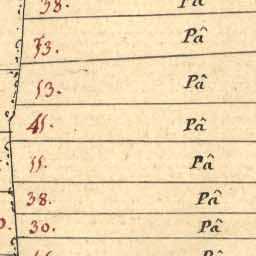 38. Pâ
53. Pâ
53. Pâ
45. Pâ
55. Pâ
38. Pâ
30. Pâ
Pâ